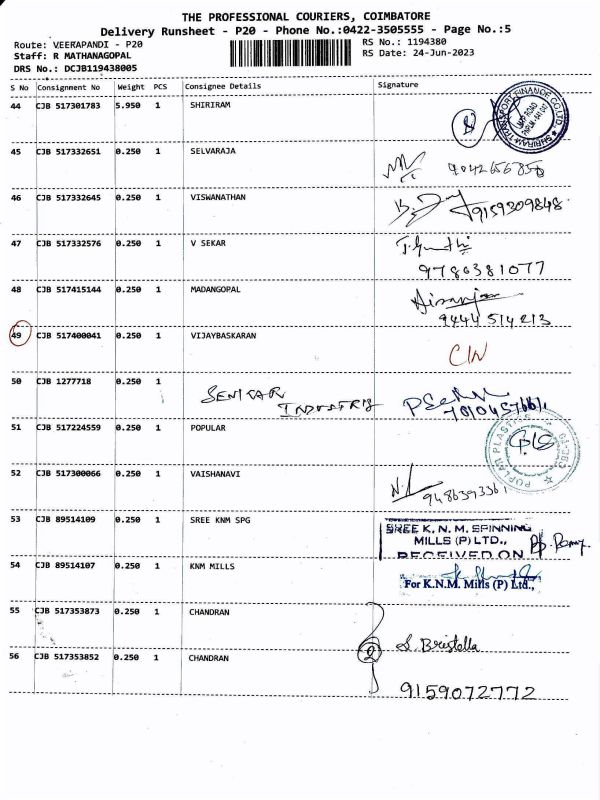 THE PROFESSIONAL COURIERS, COIMBATORE
Delivery Runsheet - P20 - Phone No.:0422-3505555 - Page No.:5
Route: VEERAPANDI - P20
RS No.: 1194380
Staff: R MATHANAGOPAL
RS Date: 24-Jun-2023
DRS No.: DCJB119438005
S No Consignment No Weight PCS Consignee Details Signature
44 CJB 517301783 5.950 1 SHIRIRAM
SHRIRAM TRANSPORT FINANCE CO. LTD.
45 CJB 517332651 0.250 1 SELVARAJA
46 CJB 517332645 0.250 1 VISWANATHAN
9159309848
47 CJB 517332576 0.250 1 V SEKAR
9786381077
48 CJB 517415144 0.250 1 MADANGOPAL
9444514213
49 CJB 517400041 0.250 1 VIJAYBASKARAN
50 CJB 1277718 0.250 1
51 CJB 517224559 0.250 1 POPULAR
52 CJB 517300066 0.250 1 VAISHANAVI
9486393361
53 CJB 89514109 0.250 1 SREE KNM SPG
SREE K. N. M. SPINNING
MILLS (P) LTD.,
RECEIVED ON
54 CJB 89514107 0.250 1 KNM MILLS
For K.N.M. Mills (P) Ltd.,
55 CJB 517353873 0.250 1 CHANDRAN
56 CJB 517353852 0.250 1 CHANDRAN
2
9159072772